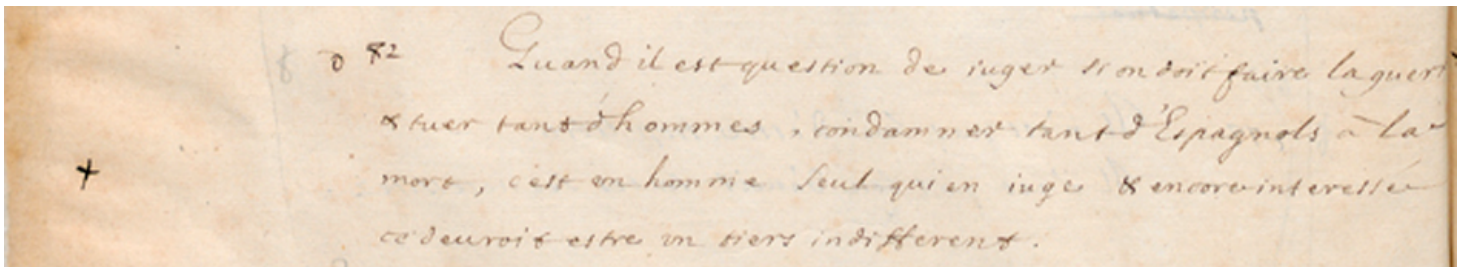 82 Quand il est question de iuger si on doit faire la guerr
& tuer tant d'hommes, condamner tant d'Espagnols à la
mort, c'est vn homme seul qui en iuge & encore interessé
ce deuroit estre vn tiers indifferent.